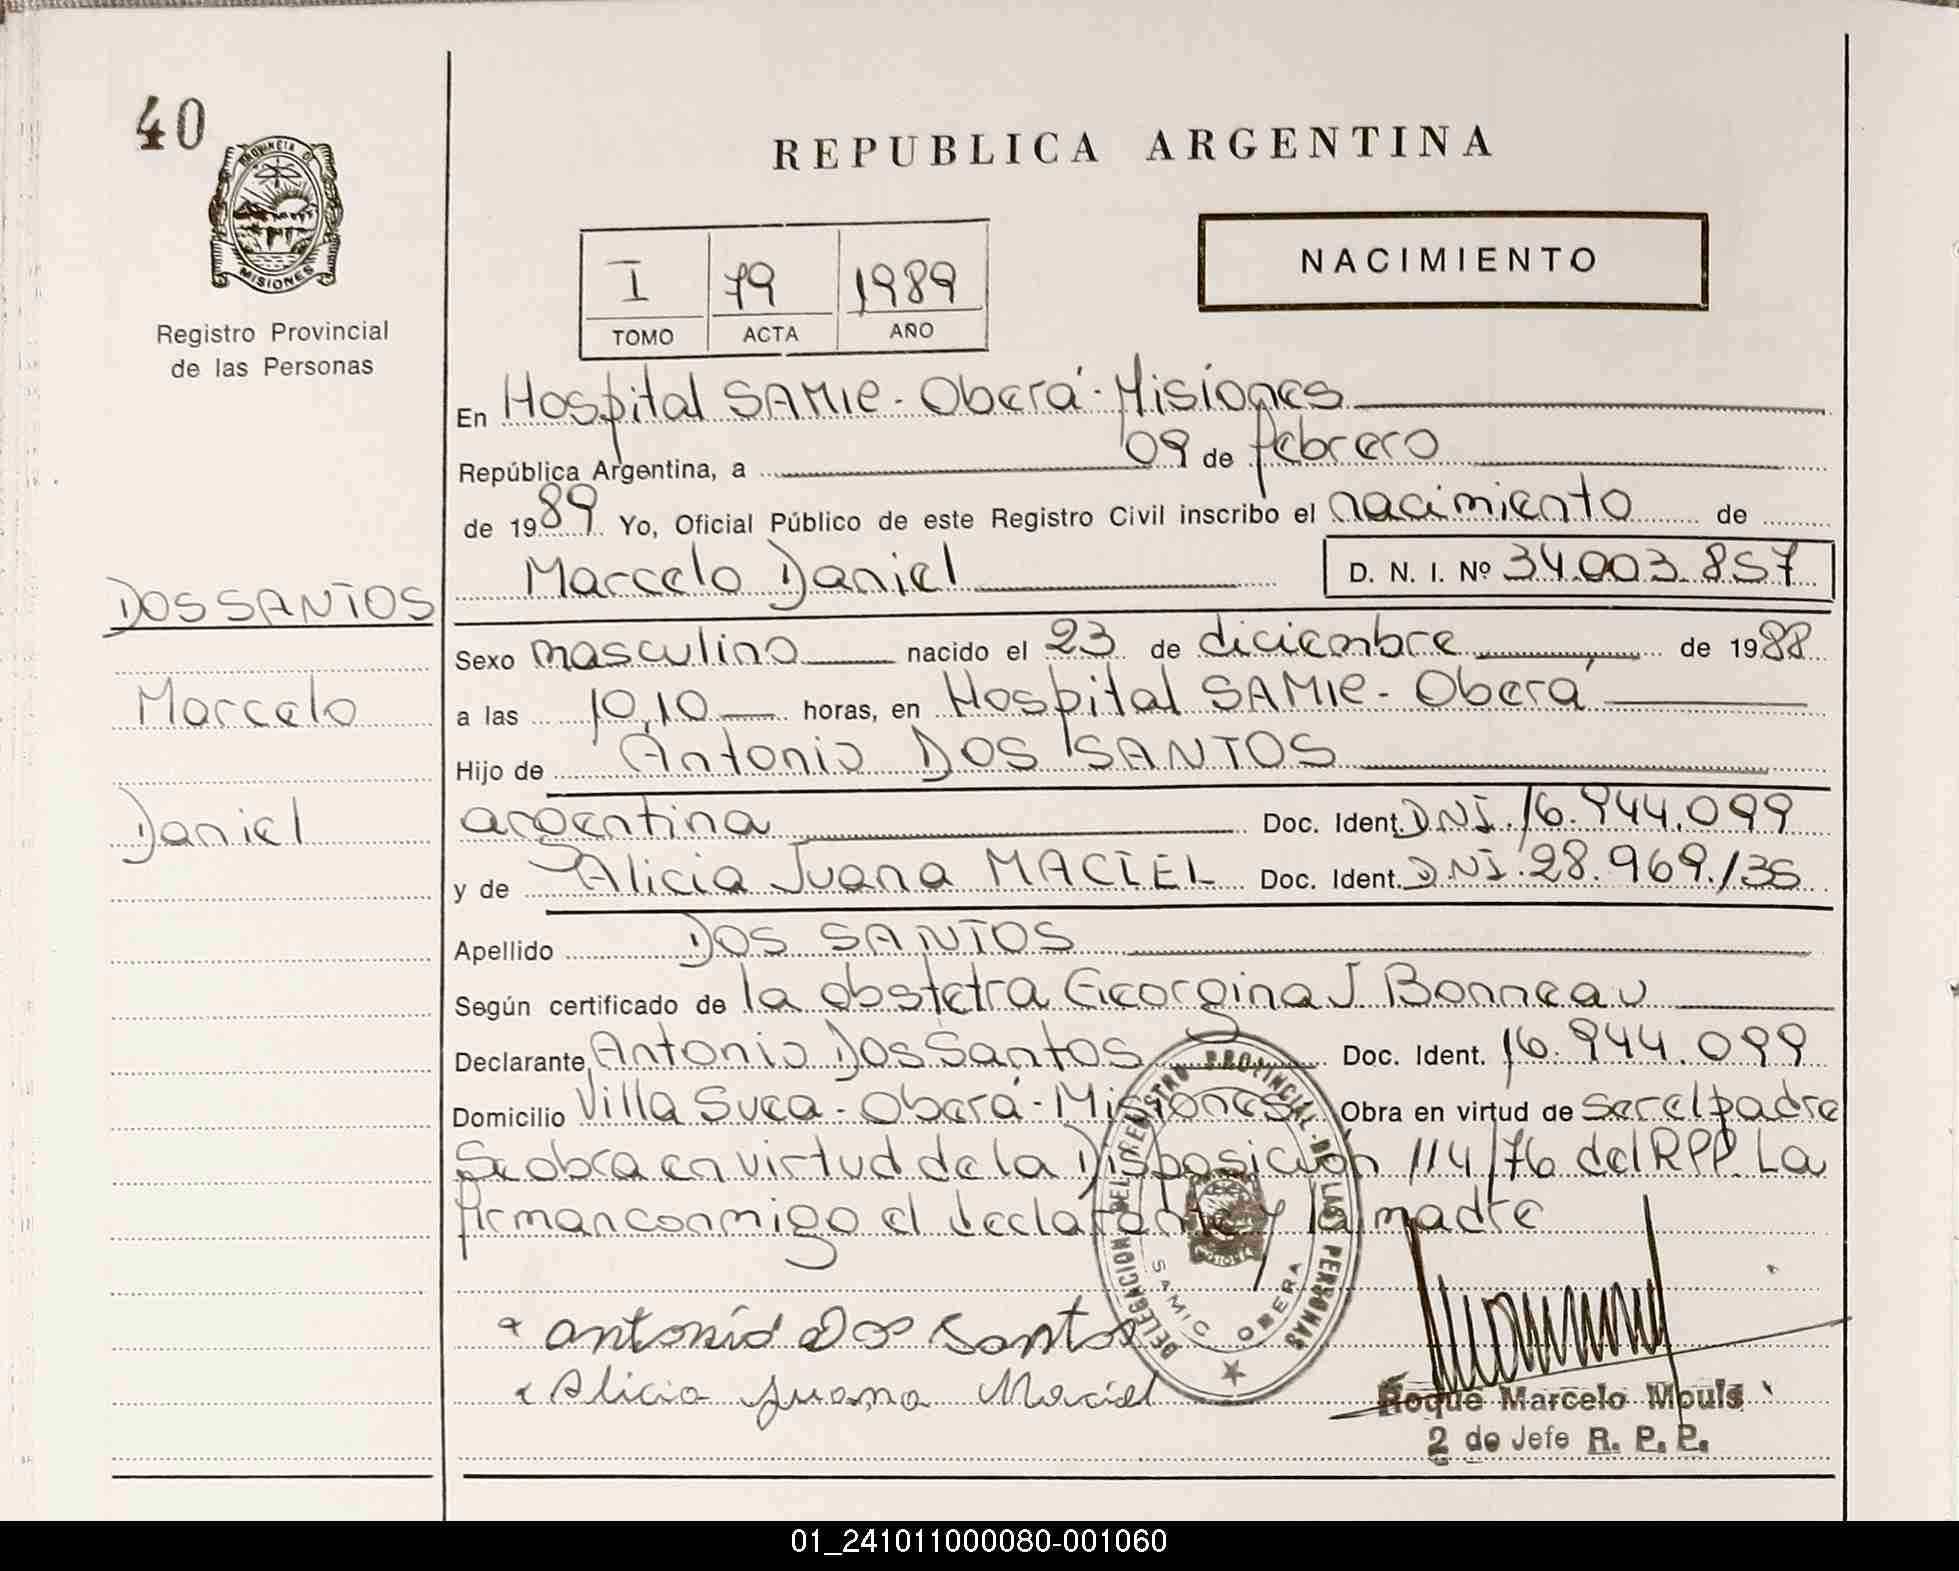 40
PROVINCIA D
MISIONES
Registro Provincial
de las Personas
REPUBLICA ARGENTINA
NACIMIENTO
I 79 1989
TOMO ACTA AÑO
En Hospital SAMIC - Oberá - Misiones
República Argentina, a 09 de febrero
de 1989. Yo, Oficial Público de este Registro Civil inscribo el nacimiento de
Marcelo Daniel D. N. I. Nº 34.003.857
DOS SANTOS
Marcelo
Daniel
Sexo masculino nacido el 23 de diciembre de 1988
a las 10,10 horas, en Hospital SAMIC - Oberá
Hijo de Antonio DOS SANTOS
argentina Doc. Ident. DNI. 16.944.099
y de Alicia Juana MACIEL Doc. Ident. DNI. 28.969.135
Apellido DOS SANTOS
Según certificado de la obstetra Georgina J Bonneau
Declarante Antonio Dos Santos Doc. Ident. 16.944.099
Domicilio Villa Sueca - Oberá - Misiones Obra en virtud de ser el padre
Se obra en virtud de la Disposición 114/76 del RPP. La
firman conmigo el declarante y la madre
antonio Dos Santos
Alicia Juana Maciel
DELEGACION DEL REGISTRO PROVINCIAL DE LAS PERSONAS
SAMIC OBERA
Roque Marcelo Mouls
2 do Jefe R. P. P.
01_241011000080-001060